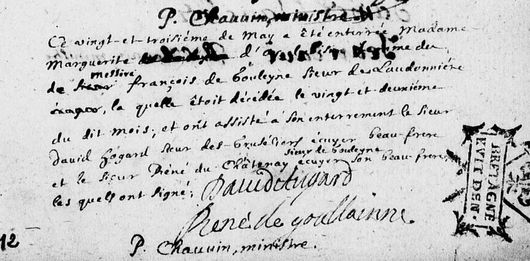 P. Chauvin, ministre
Ce vingt et troisième de May a été enterrée Madame
Marguerite d' femme du
messire
de françois de Gouleyne sieur de Laudonnière
, la quelle étoit décédée le vingt et deuxième
du dit mois, et ont assisté a son enterrement le sieur
David Hogard sieur des écuyer beau-frere
sieur de Gouleyne
et le sieur René du Châtenay écuyer son beau frere
les quels ont signé;
David Hugard
René de goullainne
12
P. Chauvin, ministre.
BRETAGNE